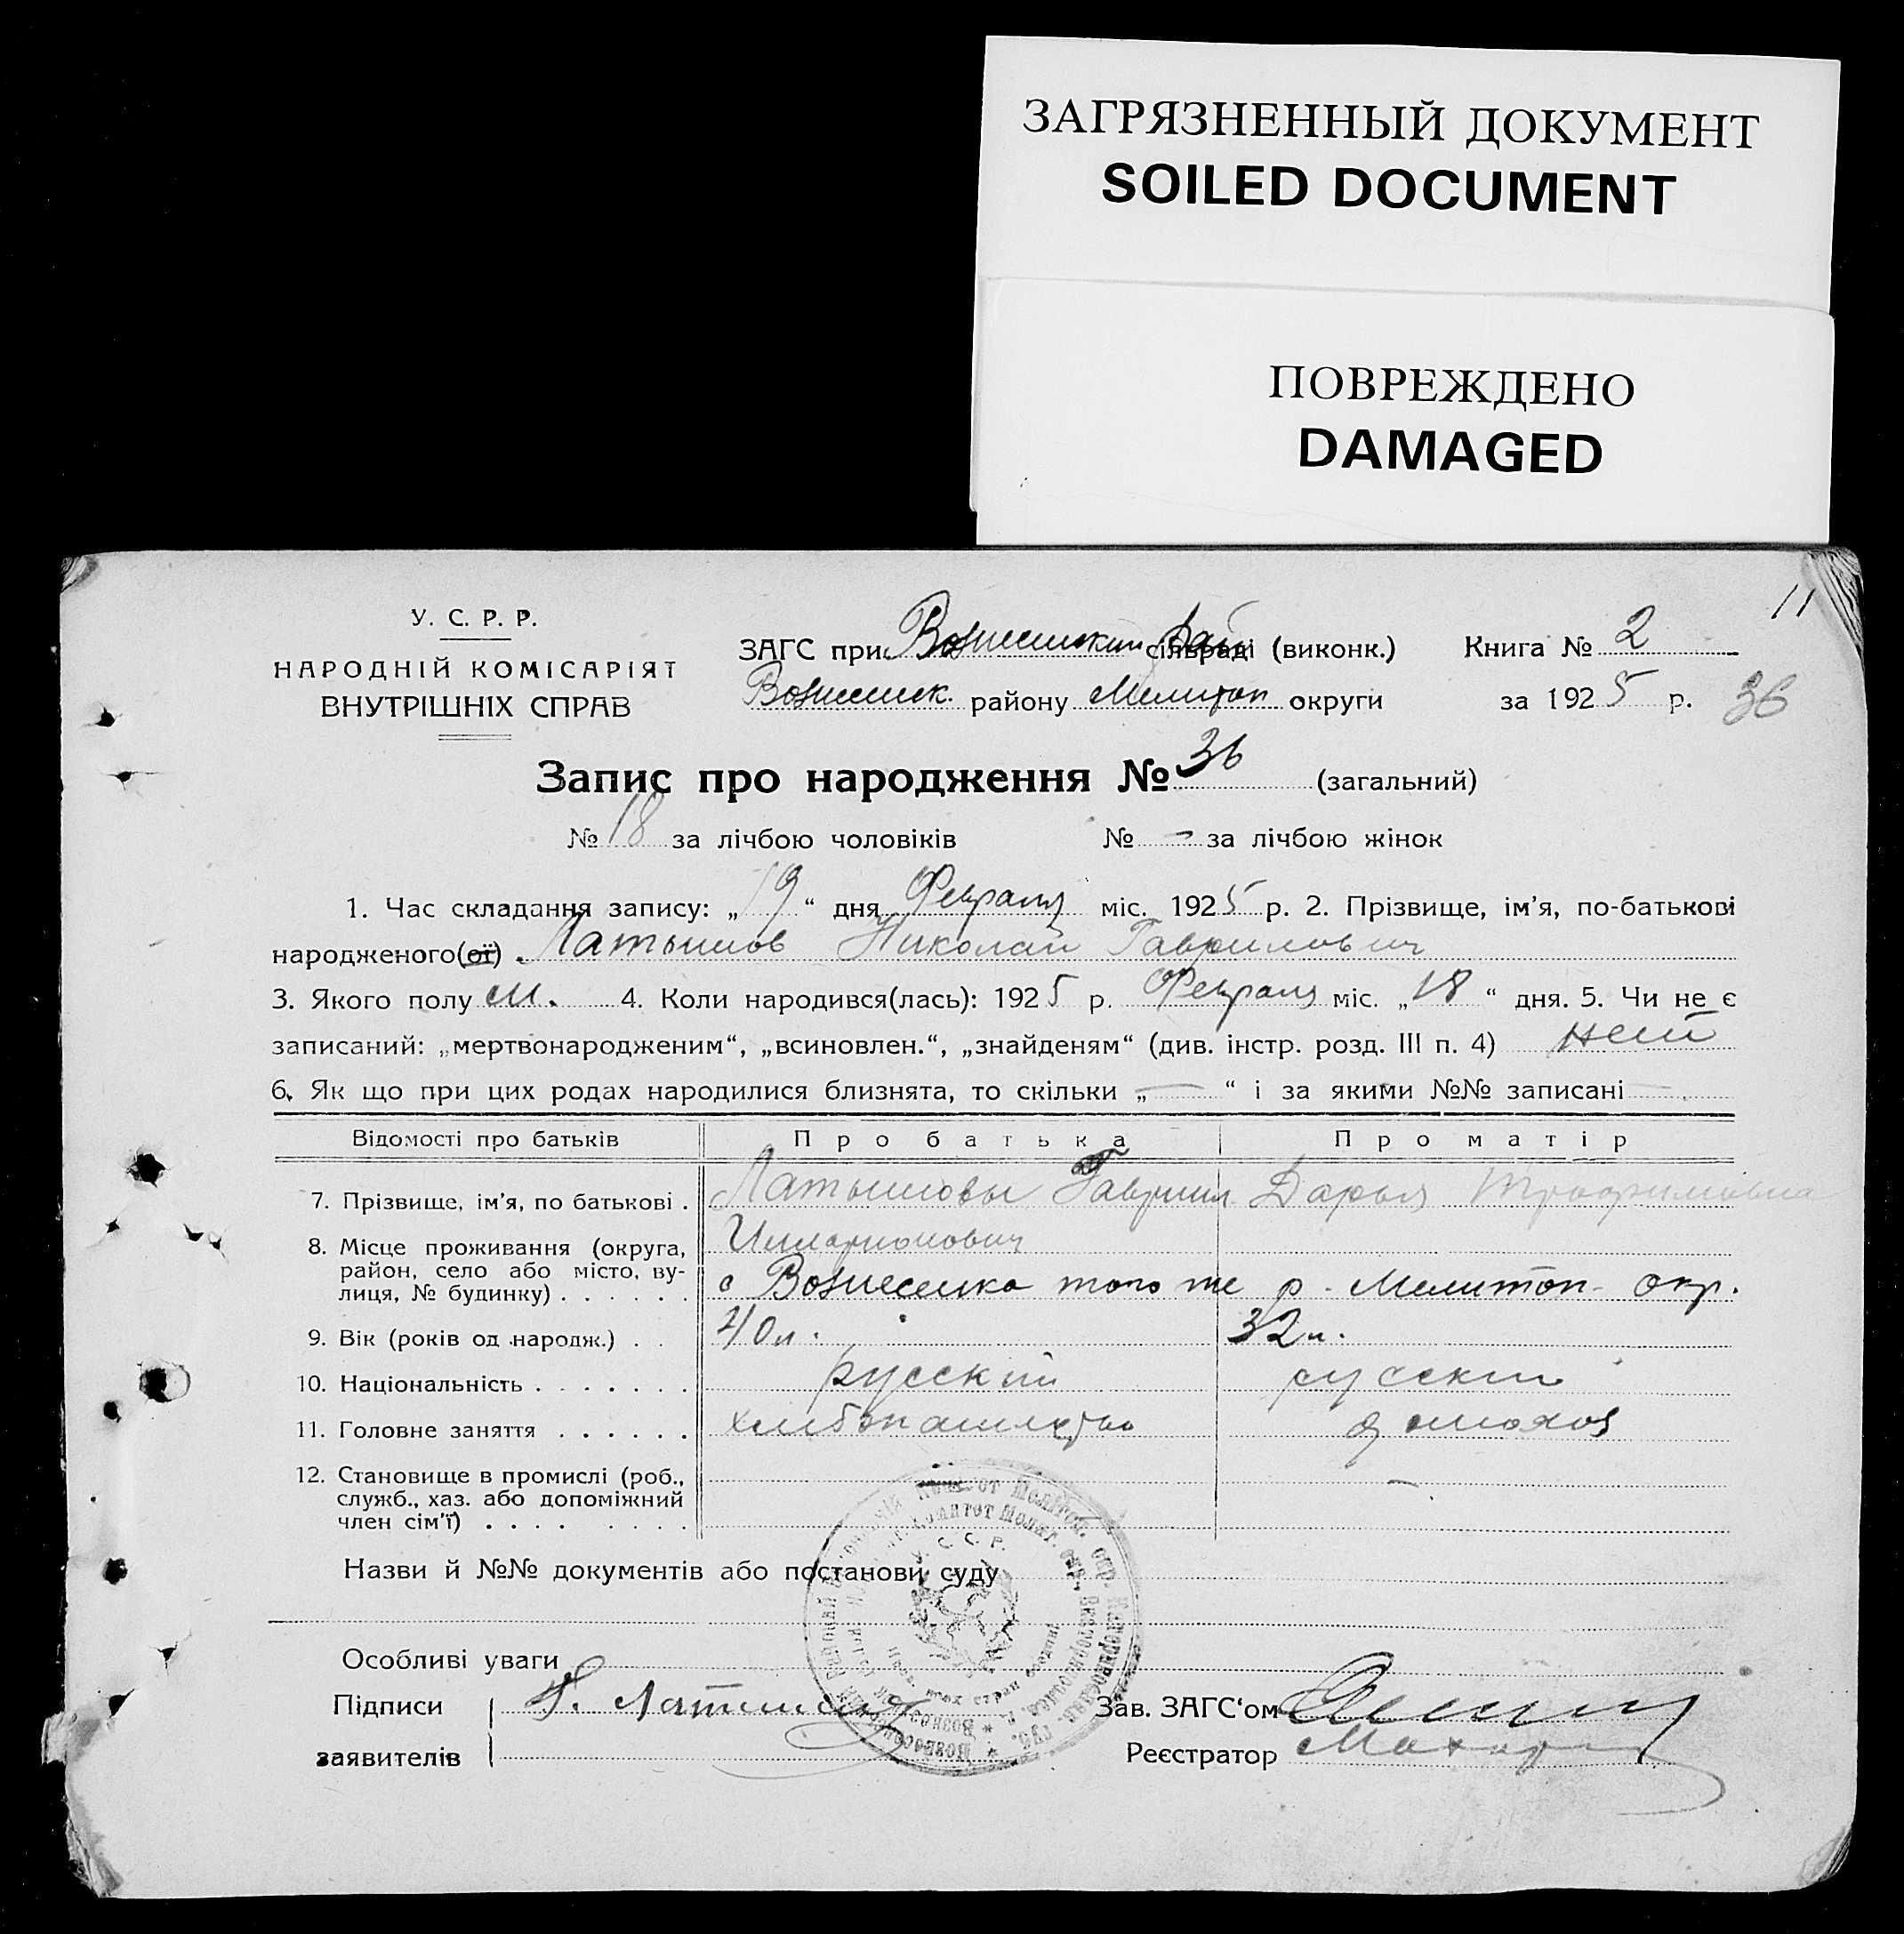 ЗАГРЯЗНЕННЫЙ ДОКУМЕНТ
SOILED DOCUMENT
ПОВРЕЖДЕНО
DAMAGED
11
У. С. Р. Р.
НАРОДНІЙ КОМІСАРІЯТ
ВНУТРІШНІХ СПРАВ
ЗАГС при Вознесенским рай сільраді (виконк.) Книга № 2
Вознесенск. району Мелитоп округи за 1925 р. 36
Запис про народження № 36 (загальний)
№ 18 за лічбою чоловіків № – за лічбою жінок
1. Час складання запису: „19“ дня Февраля міс. 1925 р. 2. Прізвище, ім’я, по-батькові
народженого(ої) Латышов Николай Гаврилович
3. Якого полу м. 4. Коли народився(лась): 1925 р. Февраля міс. „18“ дня. 5. Чи не є
записаний: „мертвонародженим“, „всиновлен.“, „знайденям“ (див. інстр. розд. III п. 4) нет
6. Як що при цих родах народилися близнята, то скільки „—“ і за якими №№ записані —
Відомості про батьків Про батька Про матір
7. Прізвище, ім’я, по батькові . Латышовы Гавриил Дарья Трофимовна
Илларионович
8. Місце проживання (округа,
район, село або місто, ву-
лиця, № будинку) . . . . . . с Вознесенка того же р. Мелитоп. окр.
9. Вік (років од народж.) . . 40 л. 32 л.
10. Національність . . . . . . . русский русский
11. Головне заняття . . . . . . хлебопашество
12. Становище в промислі (роб., –
служб., хаз. або допоміжний
член сім’ї) . . . . . . . .
Назви й №№ документів або постанови суду
У. С. С. Р.
Особливі уваги
Підписи Г. Латишов Зав. ЗАГС‘ом
заявителів Реєстратор